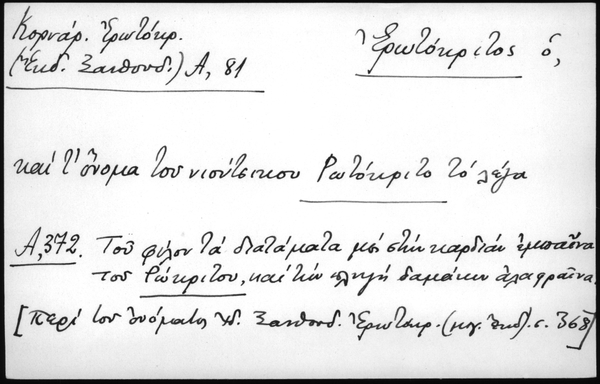 Κορνάρ. Ἐρωτόκρ.
(Ἔκδ. Ξανθουδ.) Α, 81
Ἐρωτόκριτος ὁ,
καί τ' ὄνομα του νιούτσικου Ρωτόκριτο τό λέγα
Α, 372. Τοῦ φίλου τά διατάματα μέσ στήν καρδιάν ἐμπαῖνα
του Ρώκριτου, καί τήν πληγή δαμάκιν ἀλαφραῖνα.
[περί του ὀνόματος ἰδ. Ξανθουδ. Ἐρωτόκρ. (μγ. ἔκδ). σ. 368]